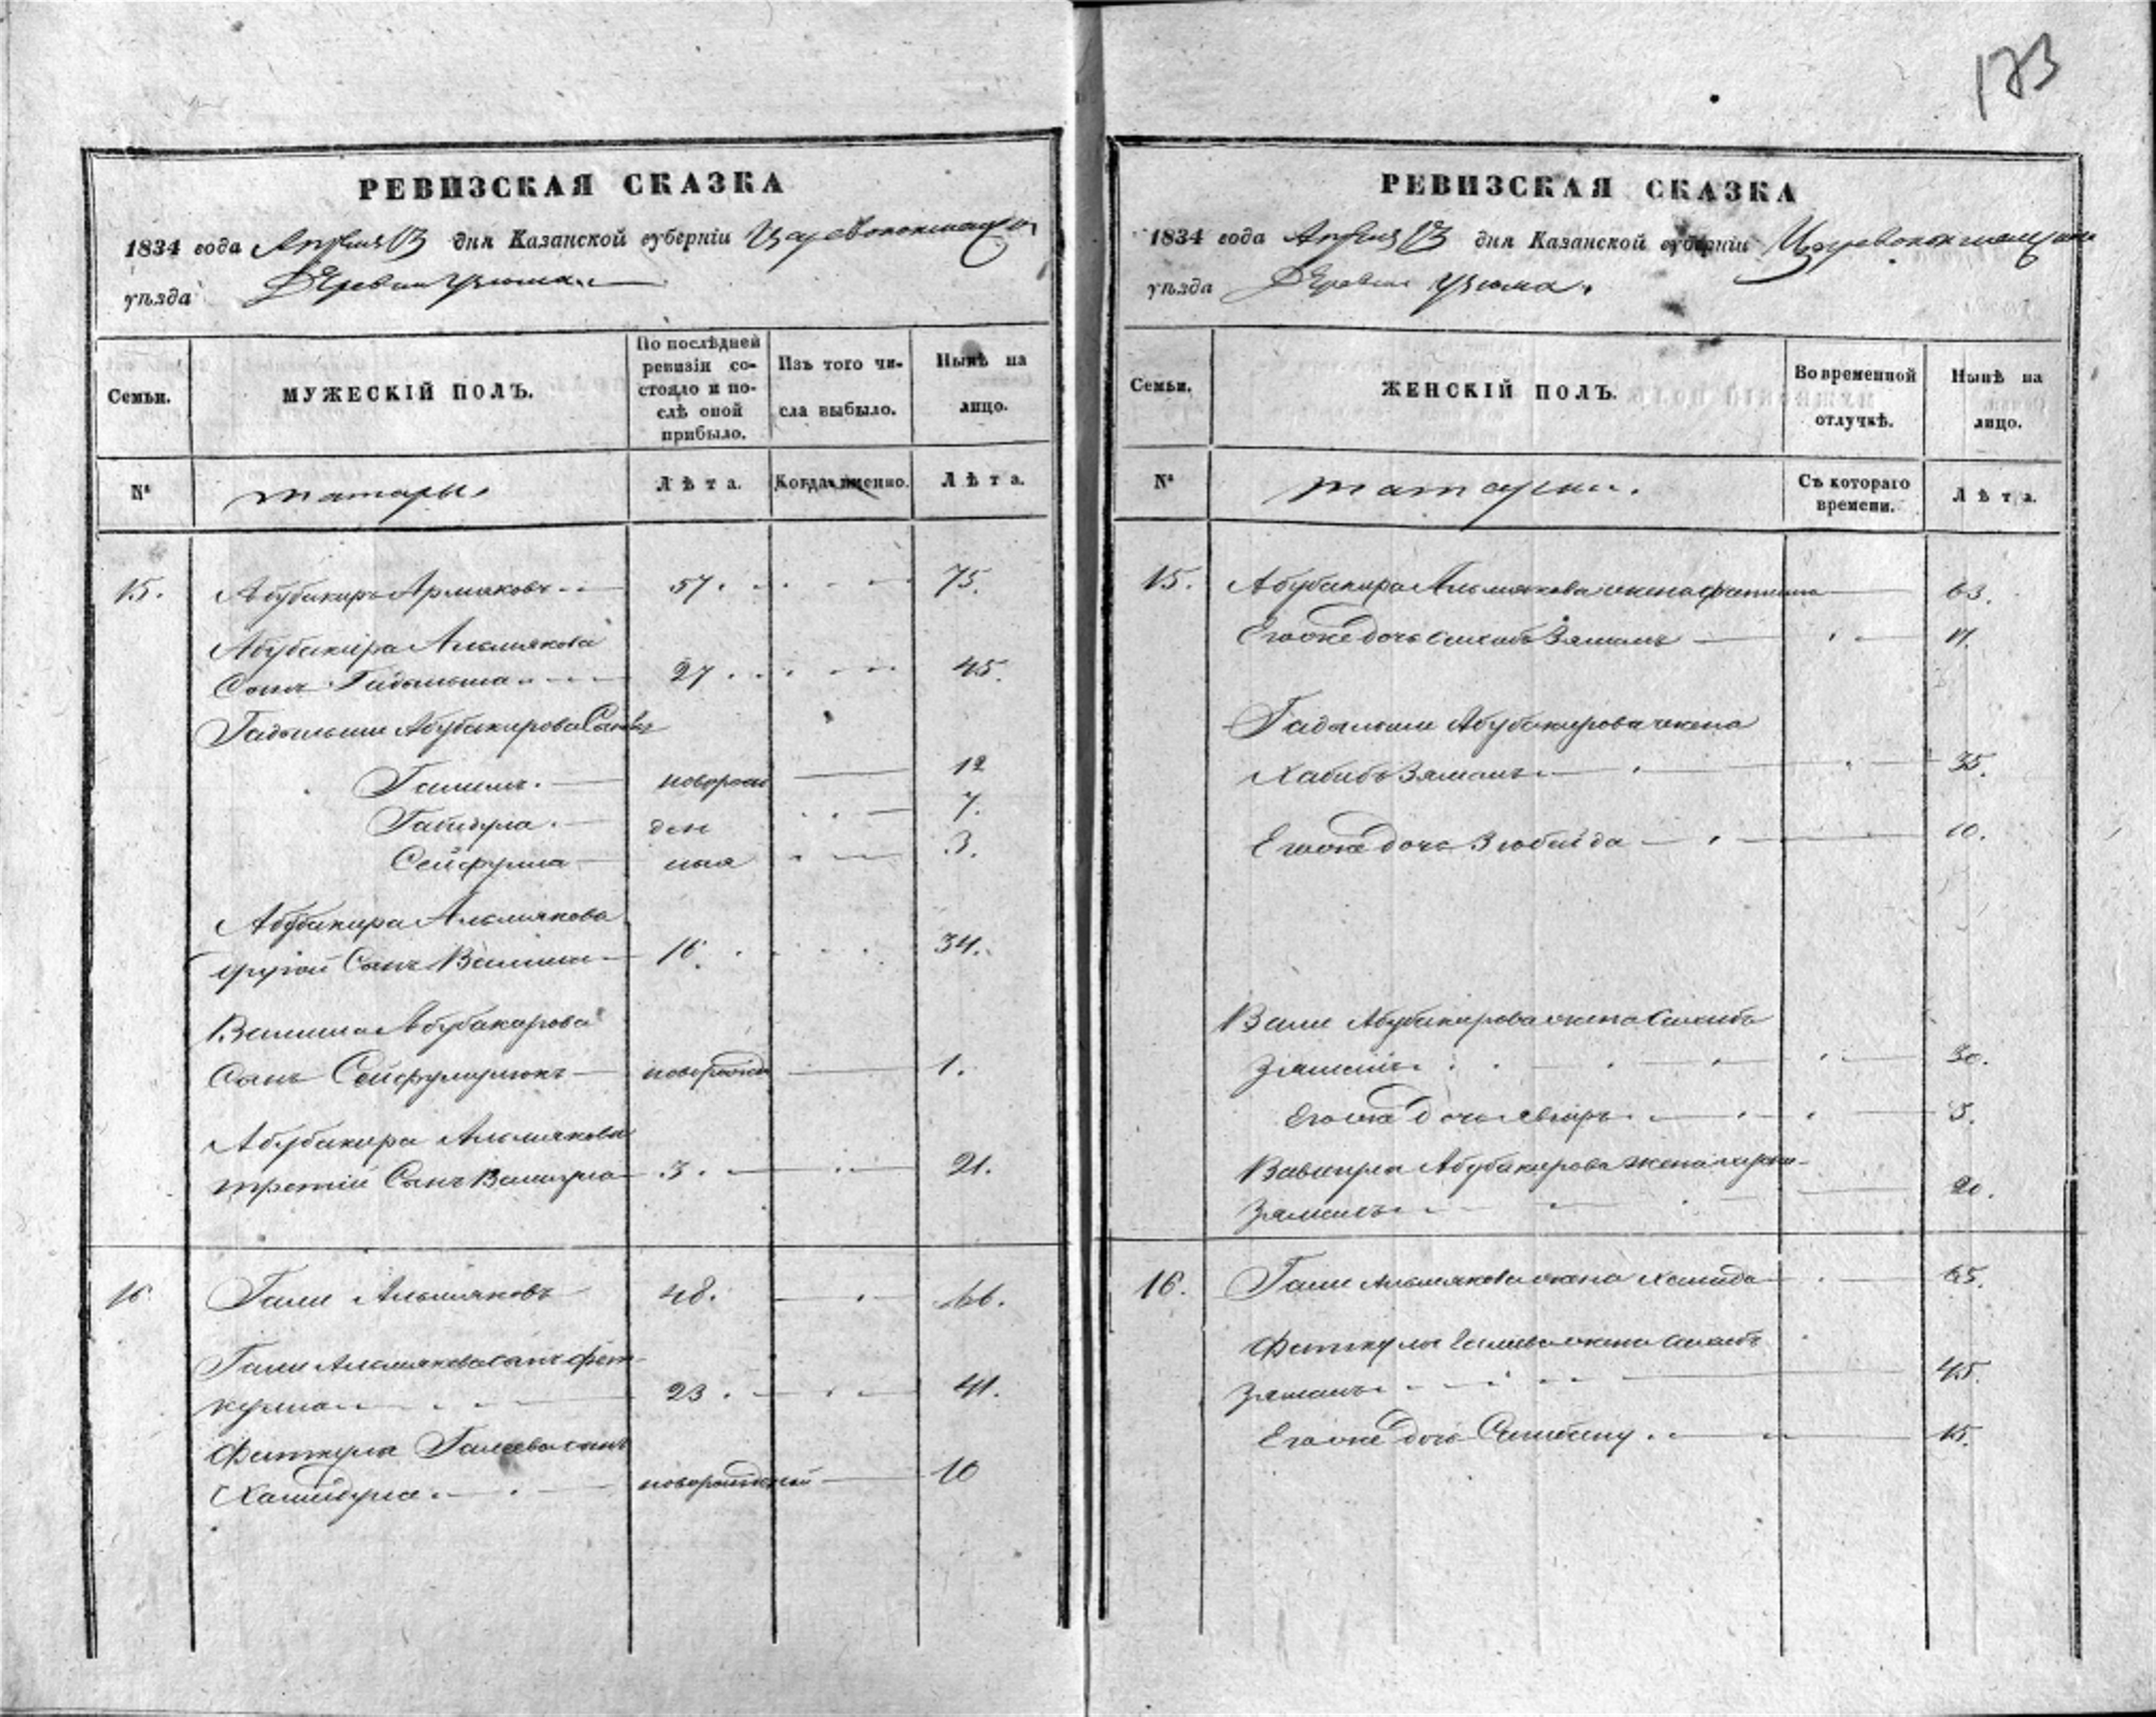 173
РЕВИЗСКАЯ СКАЗКА
1834 года Апреля 13 дня Казанской губерніи Царевококшайскаго
уѣзда Деревни Узюма
Семьи.
МУЖЕСКІЙ ПОЛЪ.
По послѣдней ревизіи состояло и послѣ оной прибыло.
Изъ того числа выбыло.
Нынѣ на лицо.
№
татары
Лѣта.
Когда именно.
Лѣта.
15. Абубакиръ Армяковъ 57. 75.
Абубакира Альмякова
Сынъ Гадельша 27. 45.
Гадельши Абубакирова Сыновья
Галимъ. новорож 12
Габидула. ден 7.
Сейфулла ныя 3.
Абубакира Альмякова
другой Сынъ Валиша 16. 34.
Валиша Абубакирова
Сынъ Сейфулмулюкъ новорожден 1.
Абубакира Альмякова
третій Сынъ 3. 21.
16 Гали Альмяковъ 48. 66.
Гали Альмякова сынъ Фет-
кулла 23. 41.
Фаткулла Галеева сынъ
Хамидулла новорожденный 10
РЕВИЗСКАЯ СКАЗКА
1834 года Апреля 13 дня Казанской губерніи Царевококшайскаго
уѣзда Деревни Узюма.
Семьи.
ЖЕНСКІЙ ПОЛЪ.
Во временной отлучкѣ.
Нынѣ на лицо.
№
татарки.
Съ котораго времени.
Лѣта.
15. Абубакира Альмякова жена Фатима 63.
Его же дочь Зямалъ 17.
Гадельши Абубакирова жена
Хабибъ Зямалъ 35.
Его же дочь Зюбайда 10.
Вали Абубакирова жена Сахибъ
Зямалъ 30.
Его же дочь 3.
Абубакирова жена
Зямалъ 20.
16. Гали Альмякова жена Хамида 65.
Фаткулы Галеева жена Сахибъ
Зямалъ 45.
Его же дочь 15.